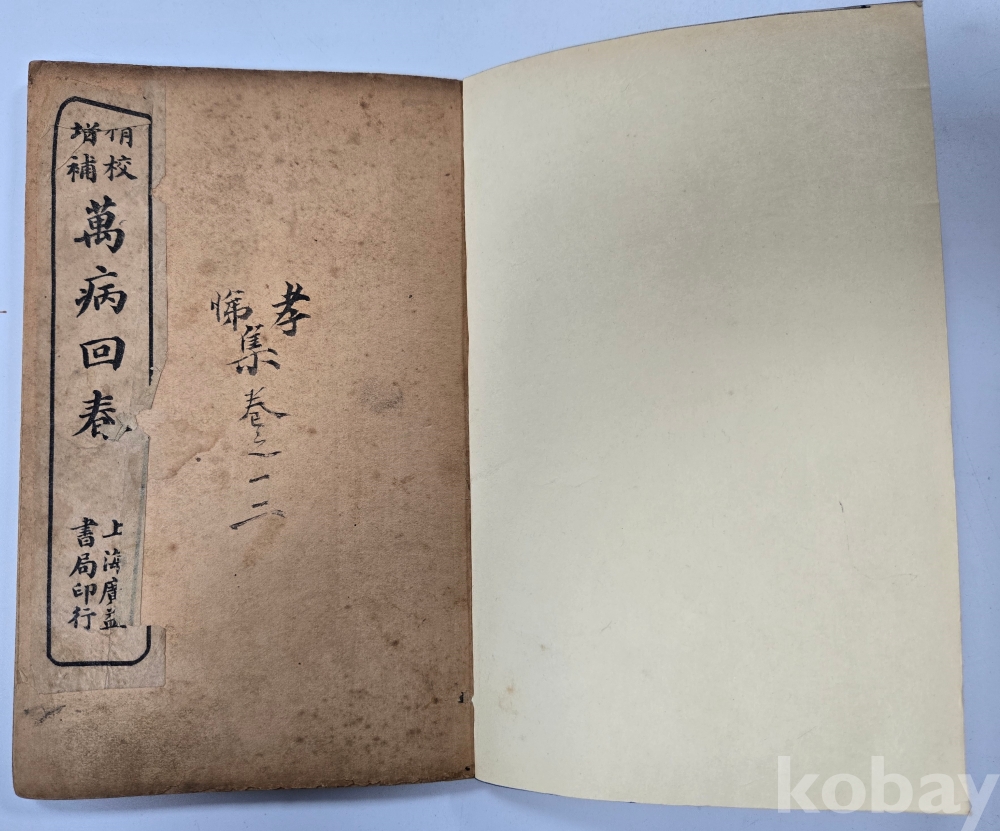 孝
悌
集卷之一二
校
增補
萬病回春
上海廣益
書局印行
kobay